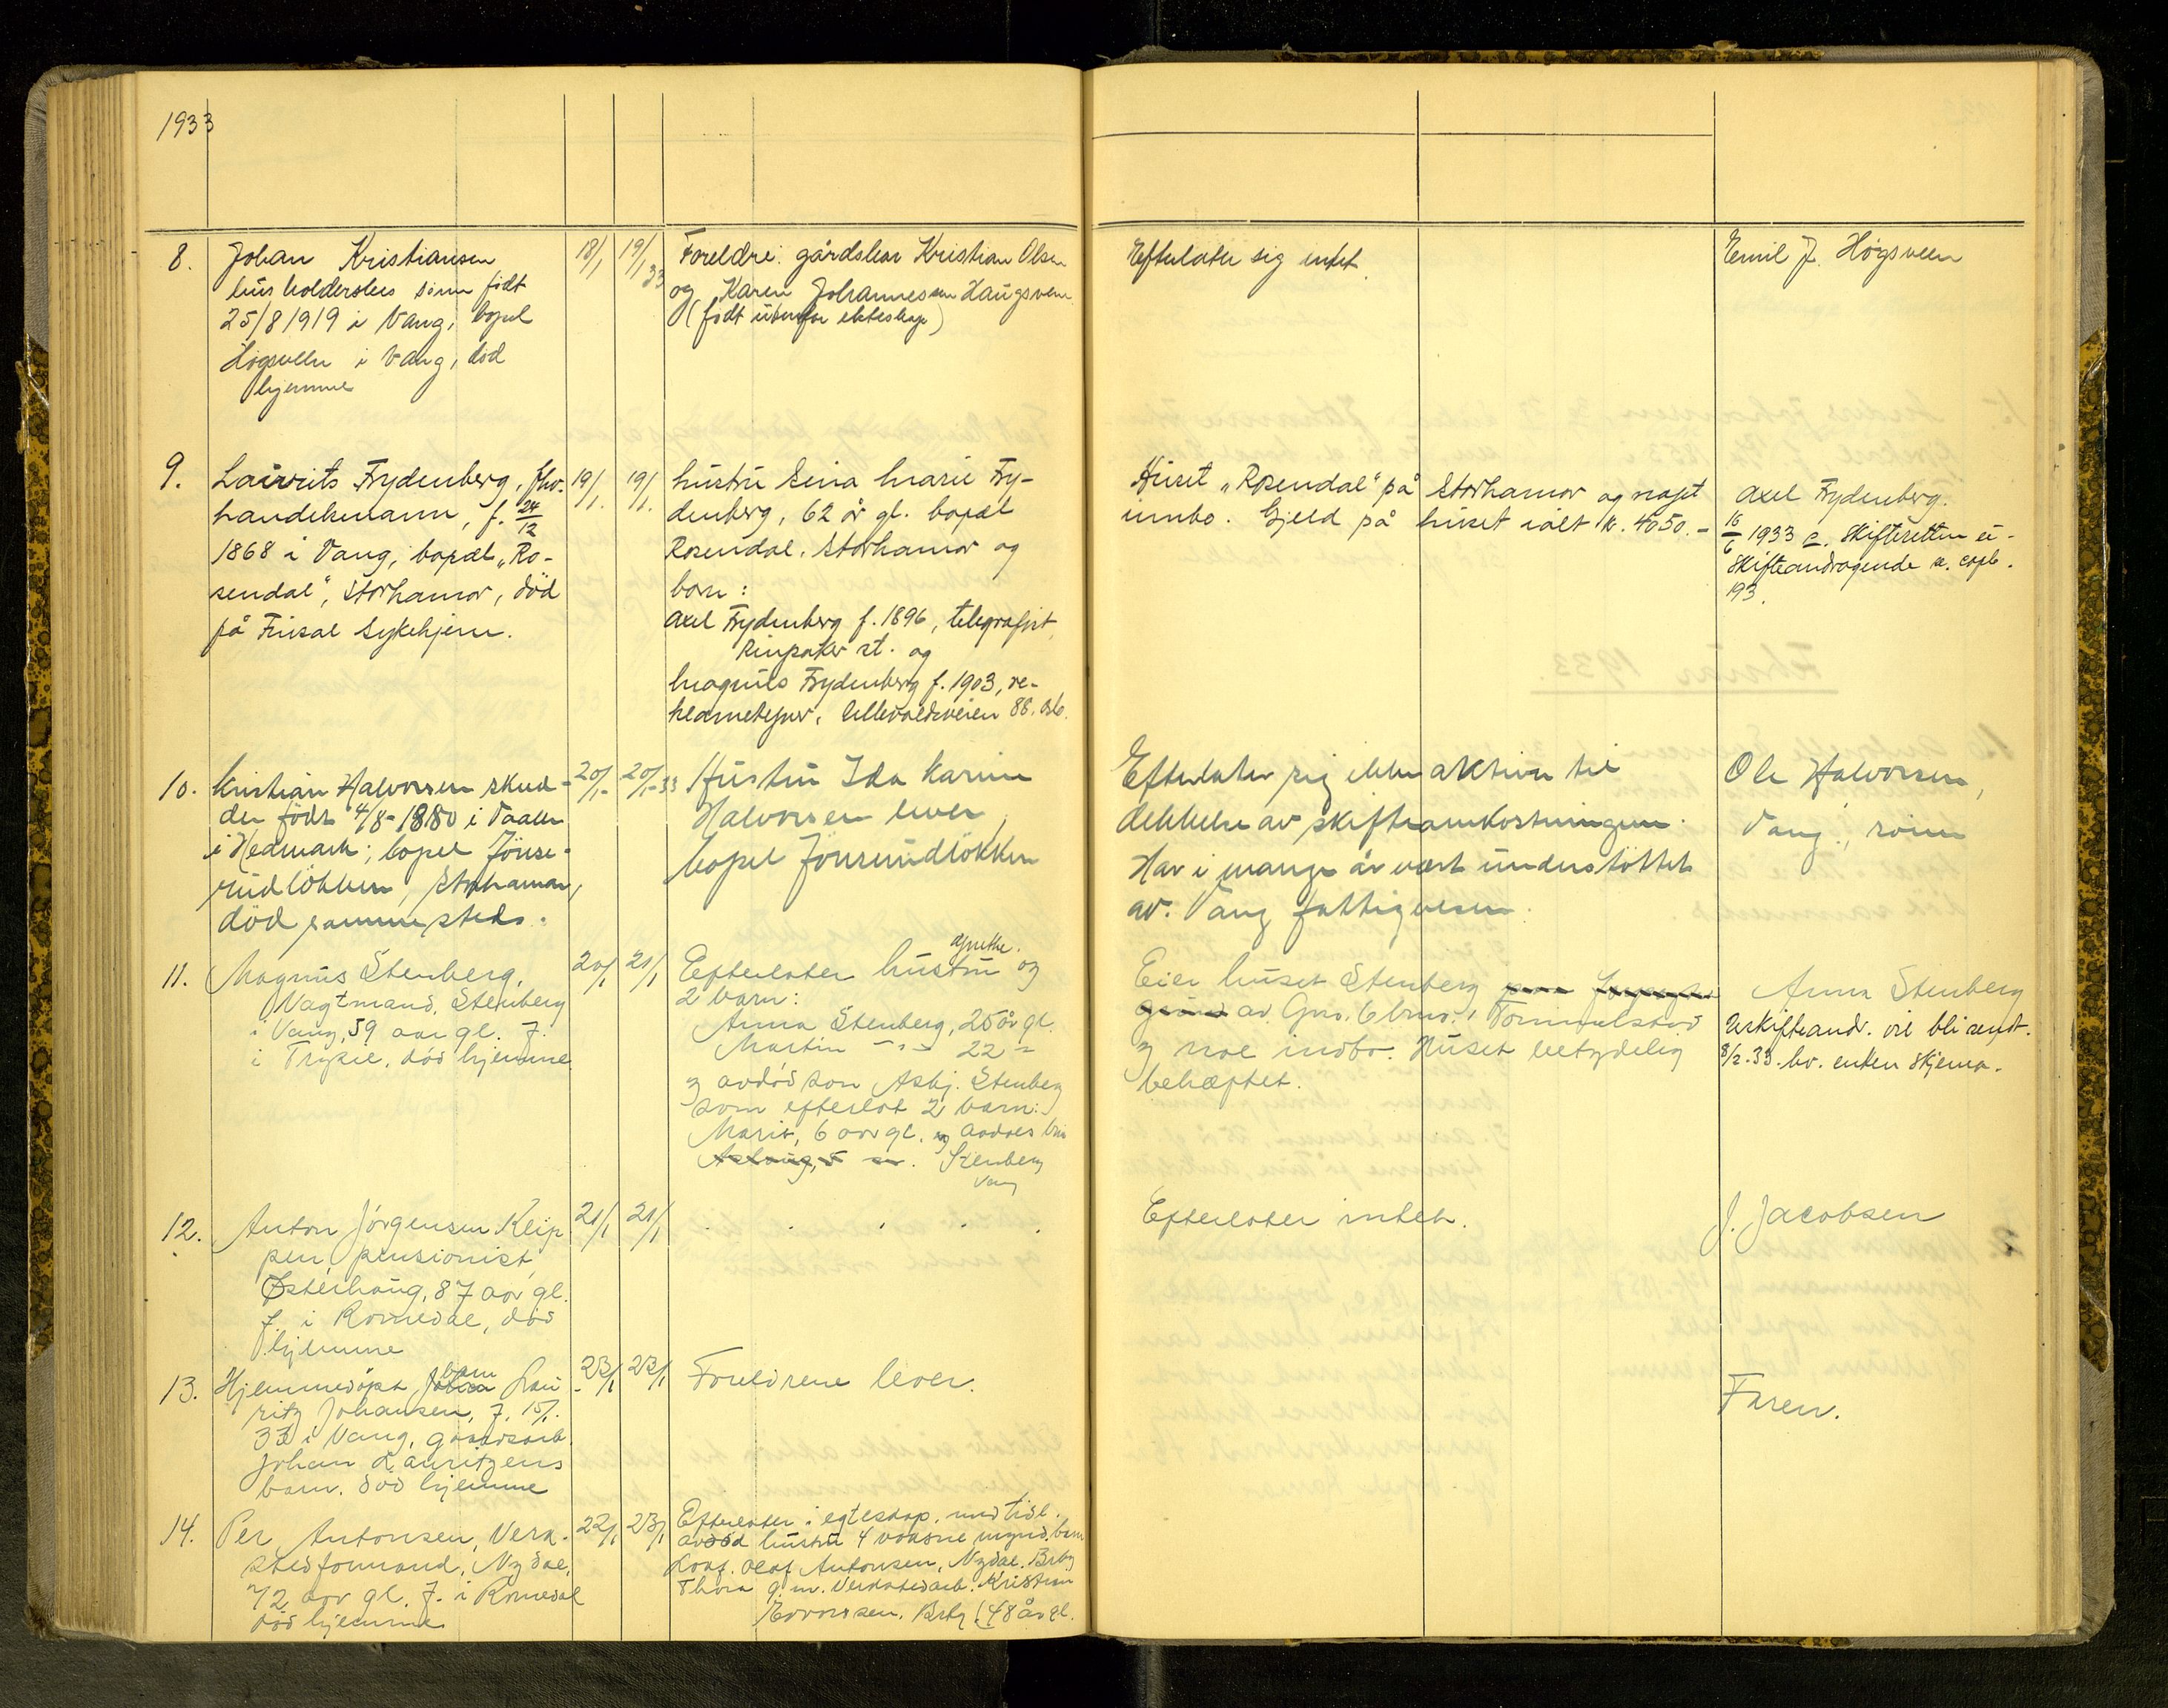 1933
8.
Johan Kristiansen
husholderskes sönn födt
25/8 1919 i Vang, bopel
Högsveen i Vang, död
hjemme
18/1
19/1 33
Foreldre: gårdsbr Kristian Olsen
og Karen Johannessen Haugsveen
(födt utenfor ekteskap)
Efterlater sig intet.
Emil J. Högsveen
9.
Lauvits Frydenberg, fhv.
handelsmann, f. 24/12
1868 i Vang, bopæl "Ro-
sendal", Storhamar, död
på Frisal Sykehjem.
19/1.
19/1.
hustru Lina Marie Fry-
denberg, 62 år gl. bopæl
Rosendal, Storhamar og
barn:
Axel Frydenberg f. 1896, telegrafist,
Ringsaker st. og
Magnus Frydenberg f. 1903, re-
klametegner, Ullevoldsveien 88. Oslo.
Huset "Rosendal" på Storhamar og noget
innbo. Gjeld på huset ialt kr. 4050.-
Axel Frydenberg.
16/6 1933 Skifteretten ui-
skifteandragende
193.
10.
Kristian Halvorsen skred-
der födt 4/8-1880 i Vaaler
i Hedmark; bopel Jönse-
rudlökken, Storhamar,
död sammesteds.
20/1-
20/1-33
Hustru Ida Karine
Halvorsen lever,
bopel Jönsrudlökken
Efterlater sig ikke aktiva til
dekkelse av skifteomkostningene.
Har i mange år vært understöttet
av Vang fattigvesen.
Ole Halvorsen,
Vang, sönn
11.
Magnus Stenberg,
Vagtmand, Stenberg
i Vang, 59 aar gl. f.
i Trysil, död hjemme.
20/1
21/1
Efterlater hustru Grethe og
2 barn:
Anna Stenberg, 25 år gl.
Martin -"- 22 "
og avdöd sön Asbj. Stenberg
som efterlot 2 barn:
Marit, 6 aar gl. og
Aslaug, 5 Stenberg
Vang
Eier huset Stenberg
grund av Gno. 6 bno. 1 Tommelstad
og noe indbo. Huset betydelig
behæftet.
Anna Stenberg
Uskifteandr. vil bli sendt.
8/2-33. bv. enken skjema.
12.
Anton Jörgensen Klip
pen, pensionist,
Østerhaug, 87 aar gl.
f. i Romedal, död
hjemme
21/1
21/1
Efterlater intet.
J. Jacobsen
13.
Hjemmedöpt barn Lau
ritz Johansen, f. 15/1.
33 i Vang, gaardsarb.
Johan Lauritzens
barn. död hjemme
23/1
23/1
Foreldrene lever.
Faren.
14.
Per Antonsen, Verk-
stedformand, Nydal,
72 aar gl. f. i Romedal
död hjemme
22/1
23/1
Efterlater i egteskap med tidl.
avdöd hustru 4 voksne mynd. barn
Olaf Antonsen, Nydal, Brby
Thora g. m. Verkstedarb. Kristian
Edvardsen. Brby (48 år gl.